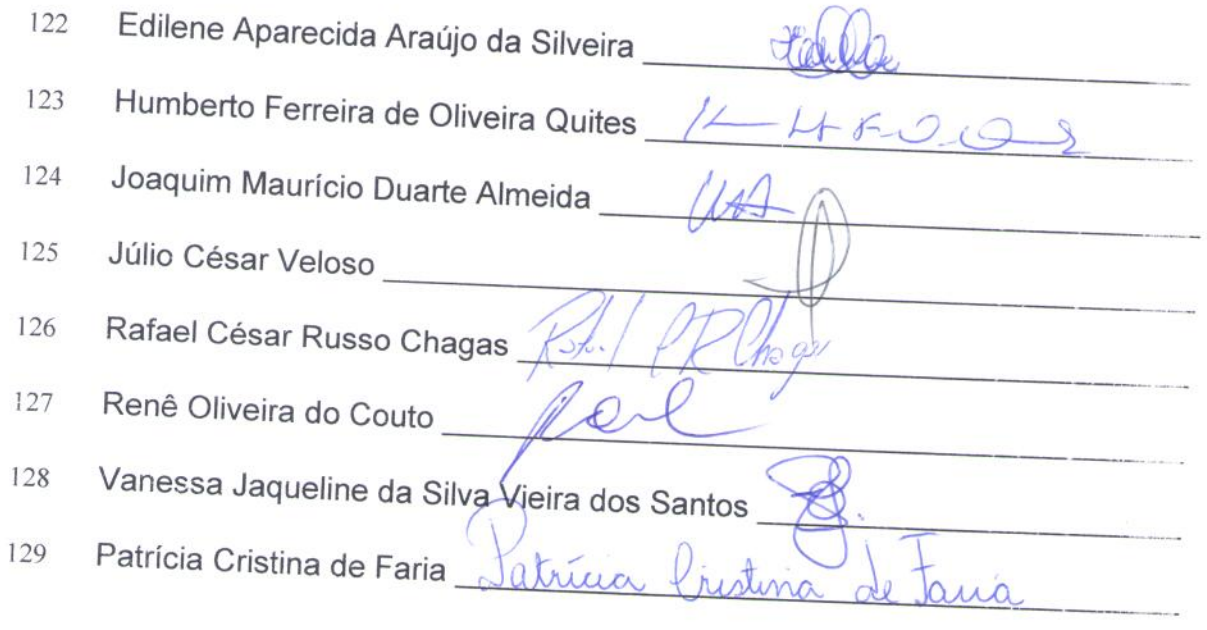 122 Edilene Aparecida Araújo da Silveira
123 Humberto Ferreira de Oliveira Quites
124 Joaquim Maurício Duarte Almeida
125 Júlio César Veloso
126 Rafael César Russo Chagas
127 Renê Oliveira do Couto
128 Vanessa Jaqueline da Silva Vieira dos Santos
129 Patrícia Cristina de Faria Patrícia Cristina de Faria